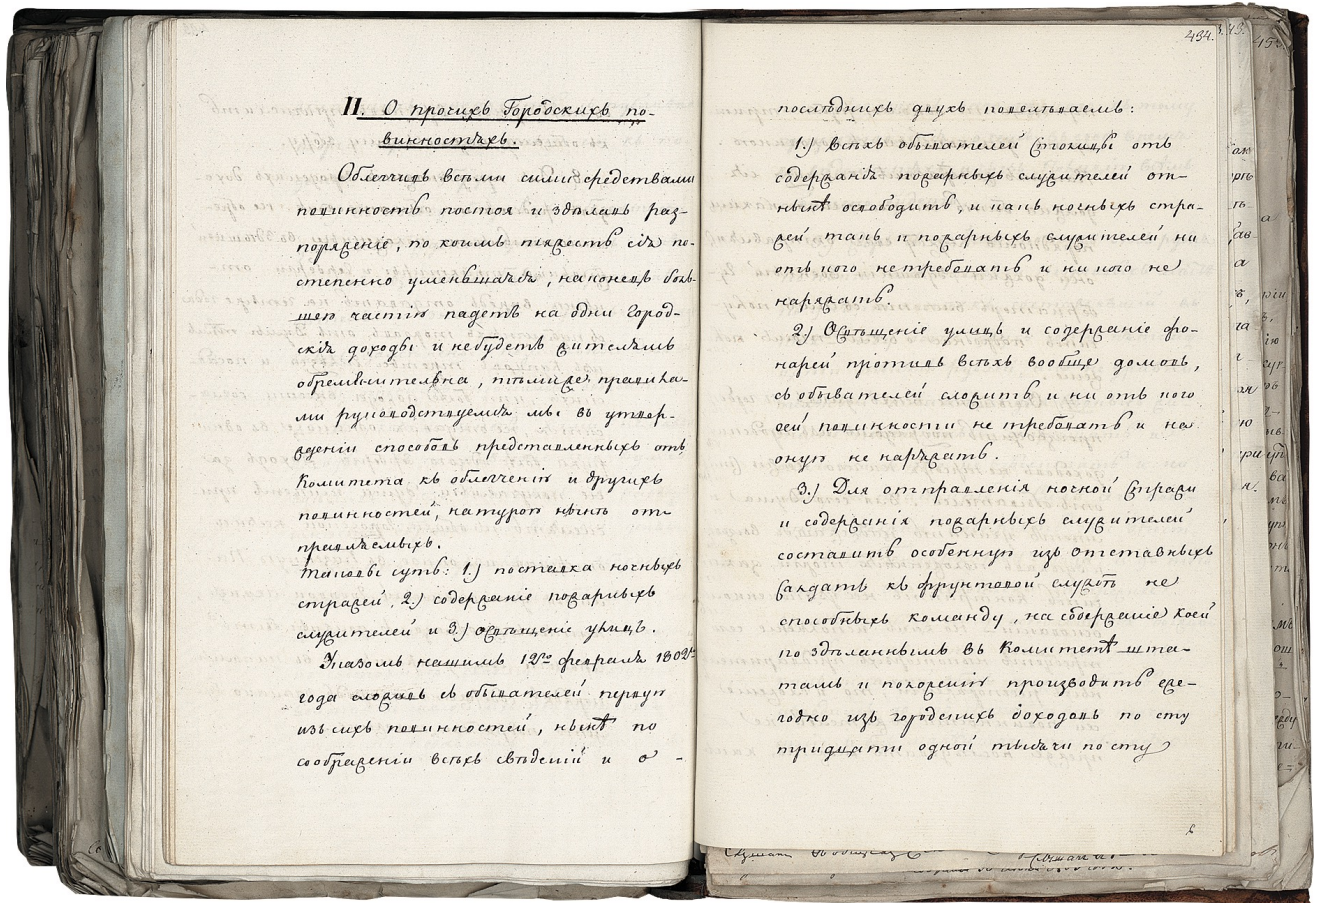 II. О прочихъ Городскихъ по-
винностяхъ.
Облегчивъ всѣми сими средствами
повинность постоя и здѣлавъ рас-
поряженіе, по коимъ тягость сія по-
степенно уменьшаясь, наконецъ боль-
шею частію падетъ на одни Город-
скія доходы и небудетъ жителямъ
обременительна, тѣмиже правила-
ми руководствуемся мы въ утвер-
жденіи способовъ представленныхъ отъ
Комитета къ облегченію и другихъ
повинностей, натурою нынѣ от-
правляемыхъ.
Таковы суть: 1.) поставка ночныхъ
стражей, 2.) содержаніе пожарныхъ
служителей и 3.) освѣщеніе улицъ.
Указомъ нашимъ 12го февраля 1802го
года сложивъ съ обывателей первую
изъ сихъ повинностей, нынѣ по
соображеніи всѣхъ свѣденій и о -
434.
послѣднихъ двухъ повелѣваемъ:
1.) Всѣхъ обывателей Столицы отъ
содержанія пожарныхъ служителей от-
нынѣ освободить, и какъ ночныхъ стра-
жей такъ и пожарныхъ служителей ни
отъ кого нетребовать и ни кого не
наряжать.
2.) Освѣщеніе улицъ и содержаніе фо-
нарей противъ всѣхъ вообще домовъ,
съ обывателей сложить и ни отъ кого
сей повинности не требовать и на
оную не наряжать.
3.) Для отправленія ночной Стражи
и содержанія пожарныхъ служителей
составить особенную изъ отставныхъ
Салдатъ къ фрунтовой службѣ не
способныхъ команду, на содержаніе коей
по здѣланнымъ въ Комитетѣ шта-
тамъ и показанію производить еже-
годно изъ городскихъ доходовъ по сту
тридцати одной тысячи по сту